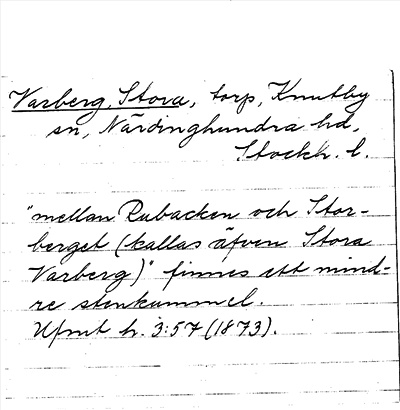 Varberg, Stora, torp, Knutby
sn, Närdinghundra hd,
Stockh. l.
"mellan Rubacken och Stor-
berget (kallas äfven Stora
Varberg)" finnes ett mind-
re stenkummel.
Ufmt h. 3:57 (1873).